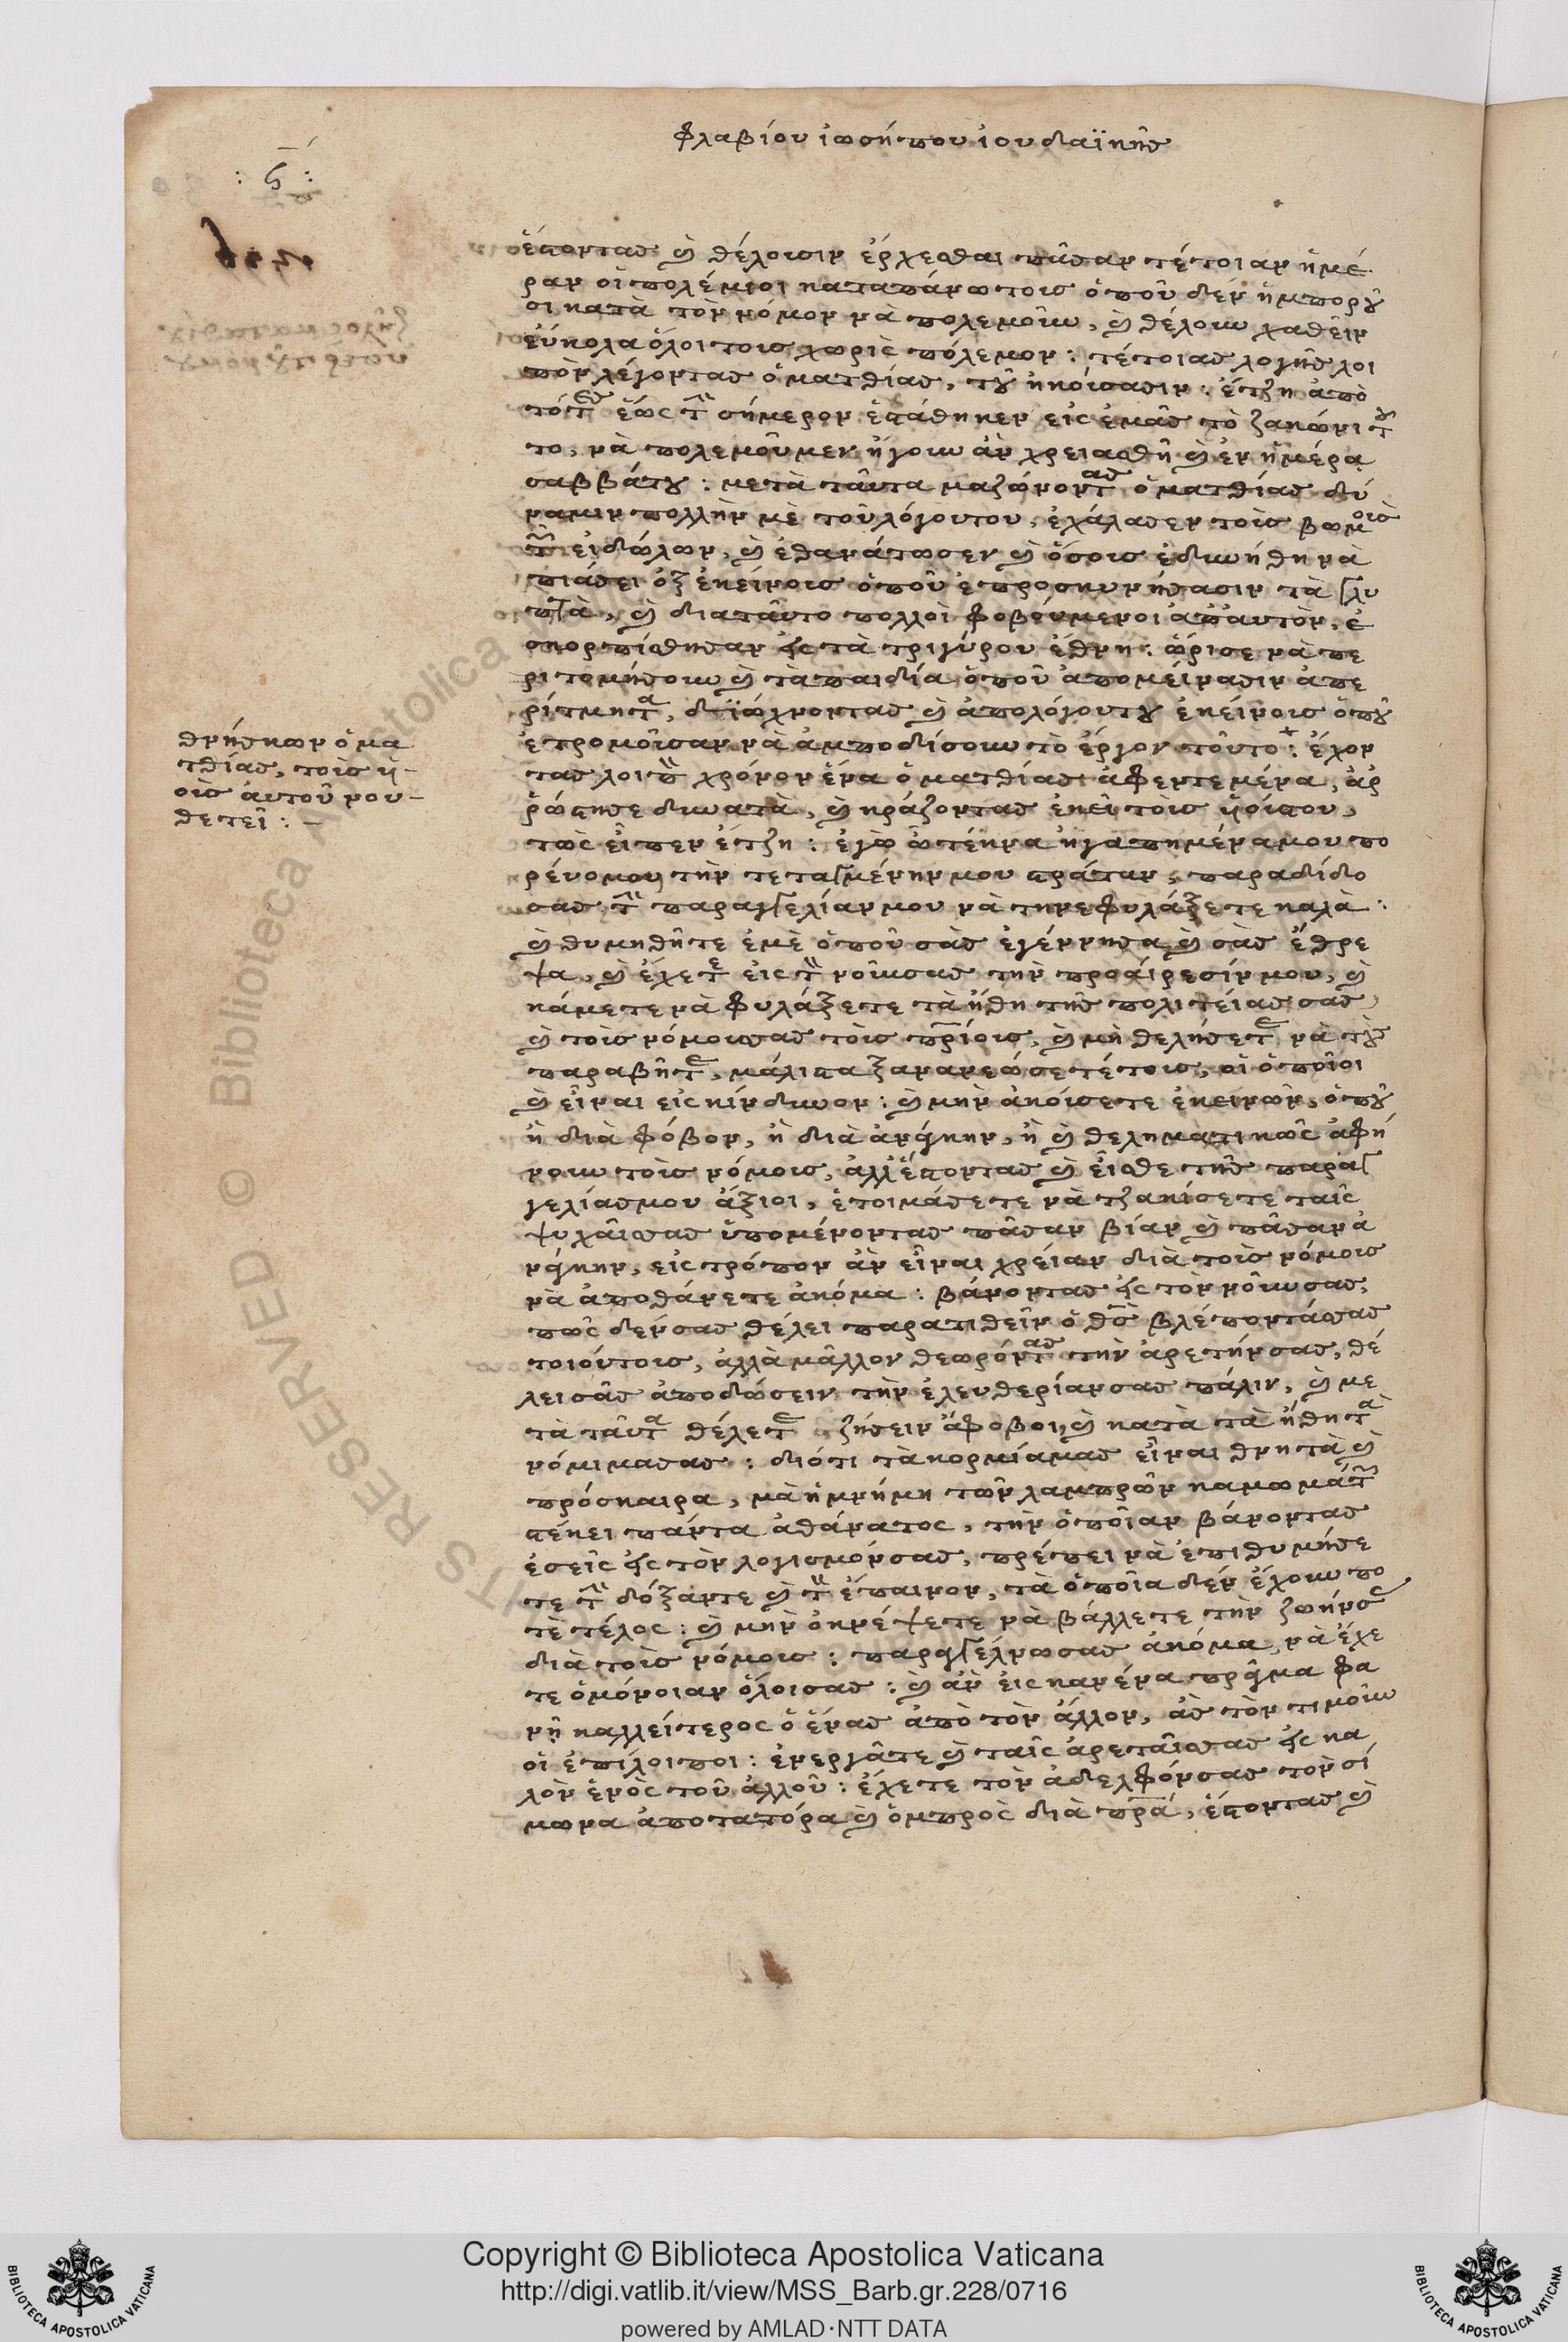 φλαβίου ἰωσήπου ἰουδαϊκῆς
: ϛ :
ἔστοντας καὶ θέλουσιν ἔρχεσθαι πᾶσαν τέτοιαν ἡμέ
ραν οἱ πολέμιοι καταπάνωτοις ὁποῦ δὲν ἠμποροῦ
σι κατὰ τὸν νόμον νὰ πολεμοῦν, καὶ θέλουν χαθεῖν
εὔκολα ὅλοι τοις χωρὶς πόλεμον : τέτοιας λογῆς λοι
πὸν λέγοντας ὁ ματθίας, τοῦ ἠκούσασιν : ἔτζη ἀπὸ
τότες ἕως τὴν σήμερον ἐστάθηκεν εἰς ἐμᾶς τὸ ζακώνι τοῦ
το, νὰ πολεμοῦμεν ἤγουν ἂν χρειασθῆ καὶ ἐν ἡμέρα
σαββάτου : μετὰ ταῦτα μαζώνοντας ὁ ματθίας δύ
ναμιν πολλὴν μὲ τοῦ λόγουτου, ἐχάλασεν τοὶς βωμοὶς
τῶν εἰδώλων, καὶ ἐθανάτωσεν καὶ ὅσοις ἐδυνήθη νὰ
πιάσει ἐξ ἐκείνοις ὁποῦ ἐπροσκυνήσασιν τὰ γλυ
πτὰ, καὶ διατοῦτο πολλοὶ φοβούμενοι ἀπ' αὐτὸν, ἐ
σκορπίσθησαν εἰς τὰ τριγύρου ἔθνη : ὥρισε νὰ πε
ριτομήσουν καὶ τὰ παιδία ὁποῦ ἀπομείνασιν ἀπε
ρίτμητα, διώχνοντας καὶ ἀπολόγουτου ἐκείνοις ὁποῦ
ἐτρομοῦσαν νὰ ἀμποδίσουν τὸ ἔργον τοῦτο : ἔχον
τας λοιπὸν χρόνον ἕνα ὁ ματθίας ἀφεντεμένα, ἀρ
ρώστησε δυνατὰ, καὶ κράζοντας ἐκεῖ τοὶς ὑϊούςτου,
τῶς εἶπεν ἔτζη : ἐγὼ ὦ τέκνα ἠγαπημέναμου πο
ρένομου τὴν τεταγμένηνμου στράταν, παραδίδο
σας τὴν παραγγελίανμου νὰ τηνε φυλάξετε καλὰ :
καὶ θυμηθῆτε ἐμὲ ὁποῦ σὰς ἐγέννησα, καὶ σὰς ἔθρε
ψα, καὶ ἔχετε εἰς τὸν νοῦνσας τὴν προαίρεσίνμου, καὶ
κάμετε νὰ φυλάξετε τὰ ἤθη τῆς πολιτείας σας
καὶ τοὶς νόμουσσας τοὶς πατρίους, καὶ μὴ θελήσετε νὰ τοὺς
παραβῆτε, μάλιστα ξανανεώσετέτοις, οἱ ὁποῖοι
καὶ εἶναι εἰς κίνδυνον : καὶ μὴν ἀκούσετε ἐκεινῶν, ὁποῦ
ἢ διὰ φόβον, ἢ διὰ ἀνάγκην, ἢ καὶ θεληματικῶς ἀφή
νουν τοὶς νόμοις, ἀλλ' ἔστοντας καὶ εἶσθε τῆς παραγ
γελίαςμου ἄξιοι, ἑτοιμάσετε νὰ τζακίσετε ταῖς
ψυχαῖςσας ὑπομένοντας πᾶσαν βίαν καὶ πᾶσαν ἀ
νάγκην, εἰς τρόπον ἂν εἶναι χρείαν διὰ τοὶς νόμοις
νὰ ἀποθάνετε ἀκόμα : βάνοντας εἰς τὸν νοῦνσας,
πῶς δὲν σας θέλει παρατιθεῖν ὁ θεὸς βλέποντάςσας
τοιούτοις, ἀλλὰ μᾶλλον θεωρόντας τὴν ἀρετήνσας, θέ
λει σᾶς ἀποδώσειν τὴν ἐλευθερίανσας πάλιν, καὶ με
τὰ ταῦτα θέλετε ζήσειν ἄφοβοι, καὶ κατὰ τὰ ἤθη τὰ
νόμιμασας : διότι τὰ κορμίαμας εἶναι θνητὰ καὶ
πρόσκαιρα, μὰ ἡ μνήμη τῶν λαμπρῶν καμωμάτων
στέκει πάντα ἀθάνατος, τὴν ὁποῖαν βάνοντας
ἐσεῖς εἰς τὸν λογισμόνσας, πρέπει νὰ ἐπιθυμήσε
τε τὴν δόξαντε καὶ τὸν ἔπαινον, τὰ ὁποῖα δὲν ἔχουν πο
τὲ τέλος : καὶ μὴν ὀκνέψετε νὰ βάλλετε τὴν ζωήνσας
διὰ τοὶς νόμοις : παραγγέλνωσας ἀκόμα, νὰ ἔχε
τε ὁμόνοιαν ὅλοισας : καὶ ἂν εἰς κανένα πρᾶγμα φα
νῆ καλλείτερος ὁ ἕνας ἀπὸ τὸν ἄλλον, ἂς τὸν τιμοῦν
οἱ ἐπίλοιποι : ἐνεργᾶτε καὶ ταῖς ἀρεταῖςσας εἰς κα
λὸν ἑνὸς τοῦ ἀλλοῦ : ἔχετε τὸν ἀδελφόνσας τὸν σί
μωνα ἀποτατόρα καὶ ὀμπρὸς διὰ πατέρα, ἔστοντας καὶ
θνήσκων ὁ μα
τθίας, τοὶς ὑ-
οὶς αὐτοῦ νου-
θετεῖ : —
Copyright © Biblioteca Apostolica Vaticana
http://digi.vatlib.it/view/MSS_Barb.gr.228/0716
powered by AMLAD·NTT DATA